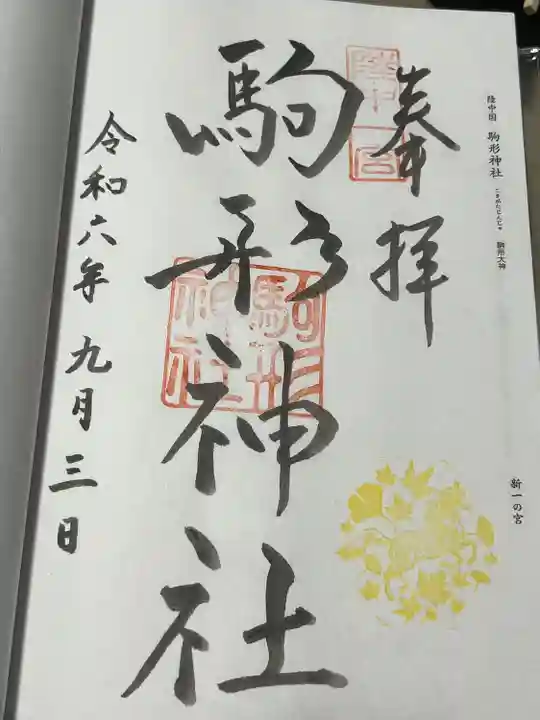 陸中国 駒形神社 こまがたじんじゃ 駒形大神
新一の宮
奉拝
陸中
一宮
駒形神社
駒形
神社
令和六年九月三日